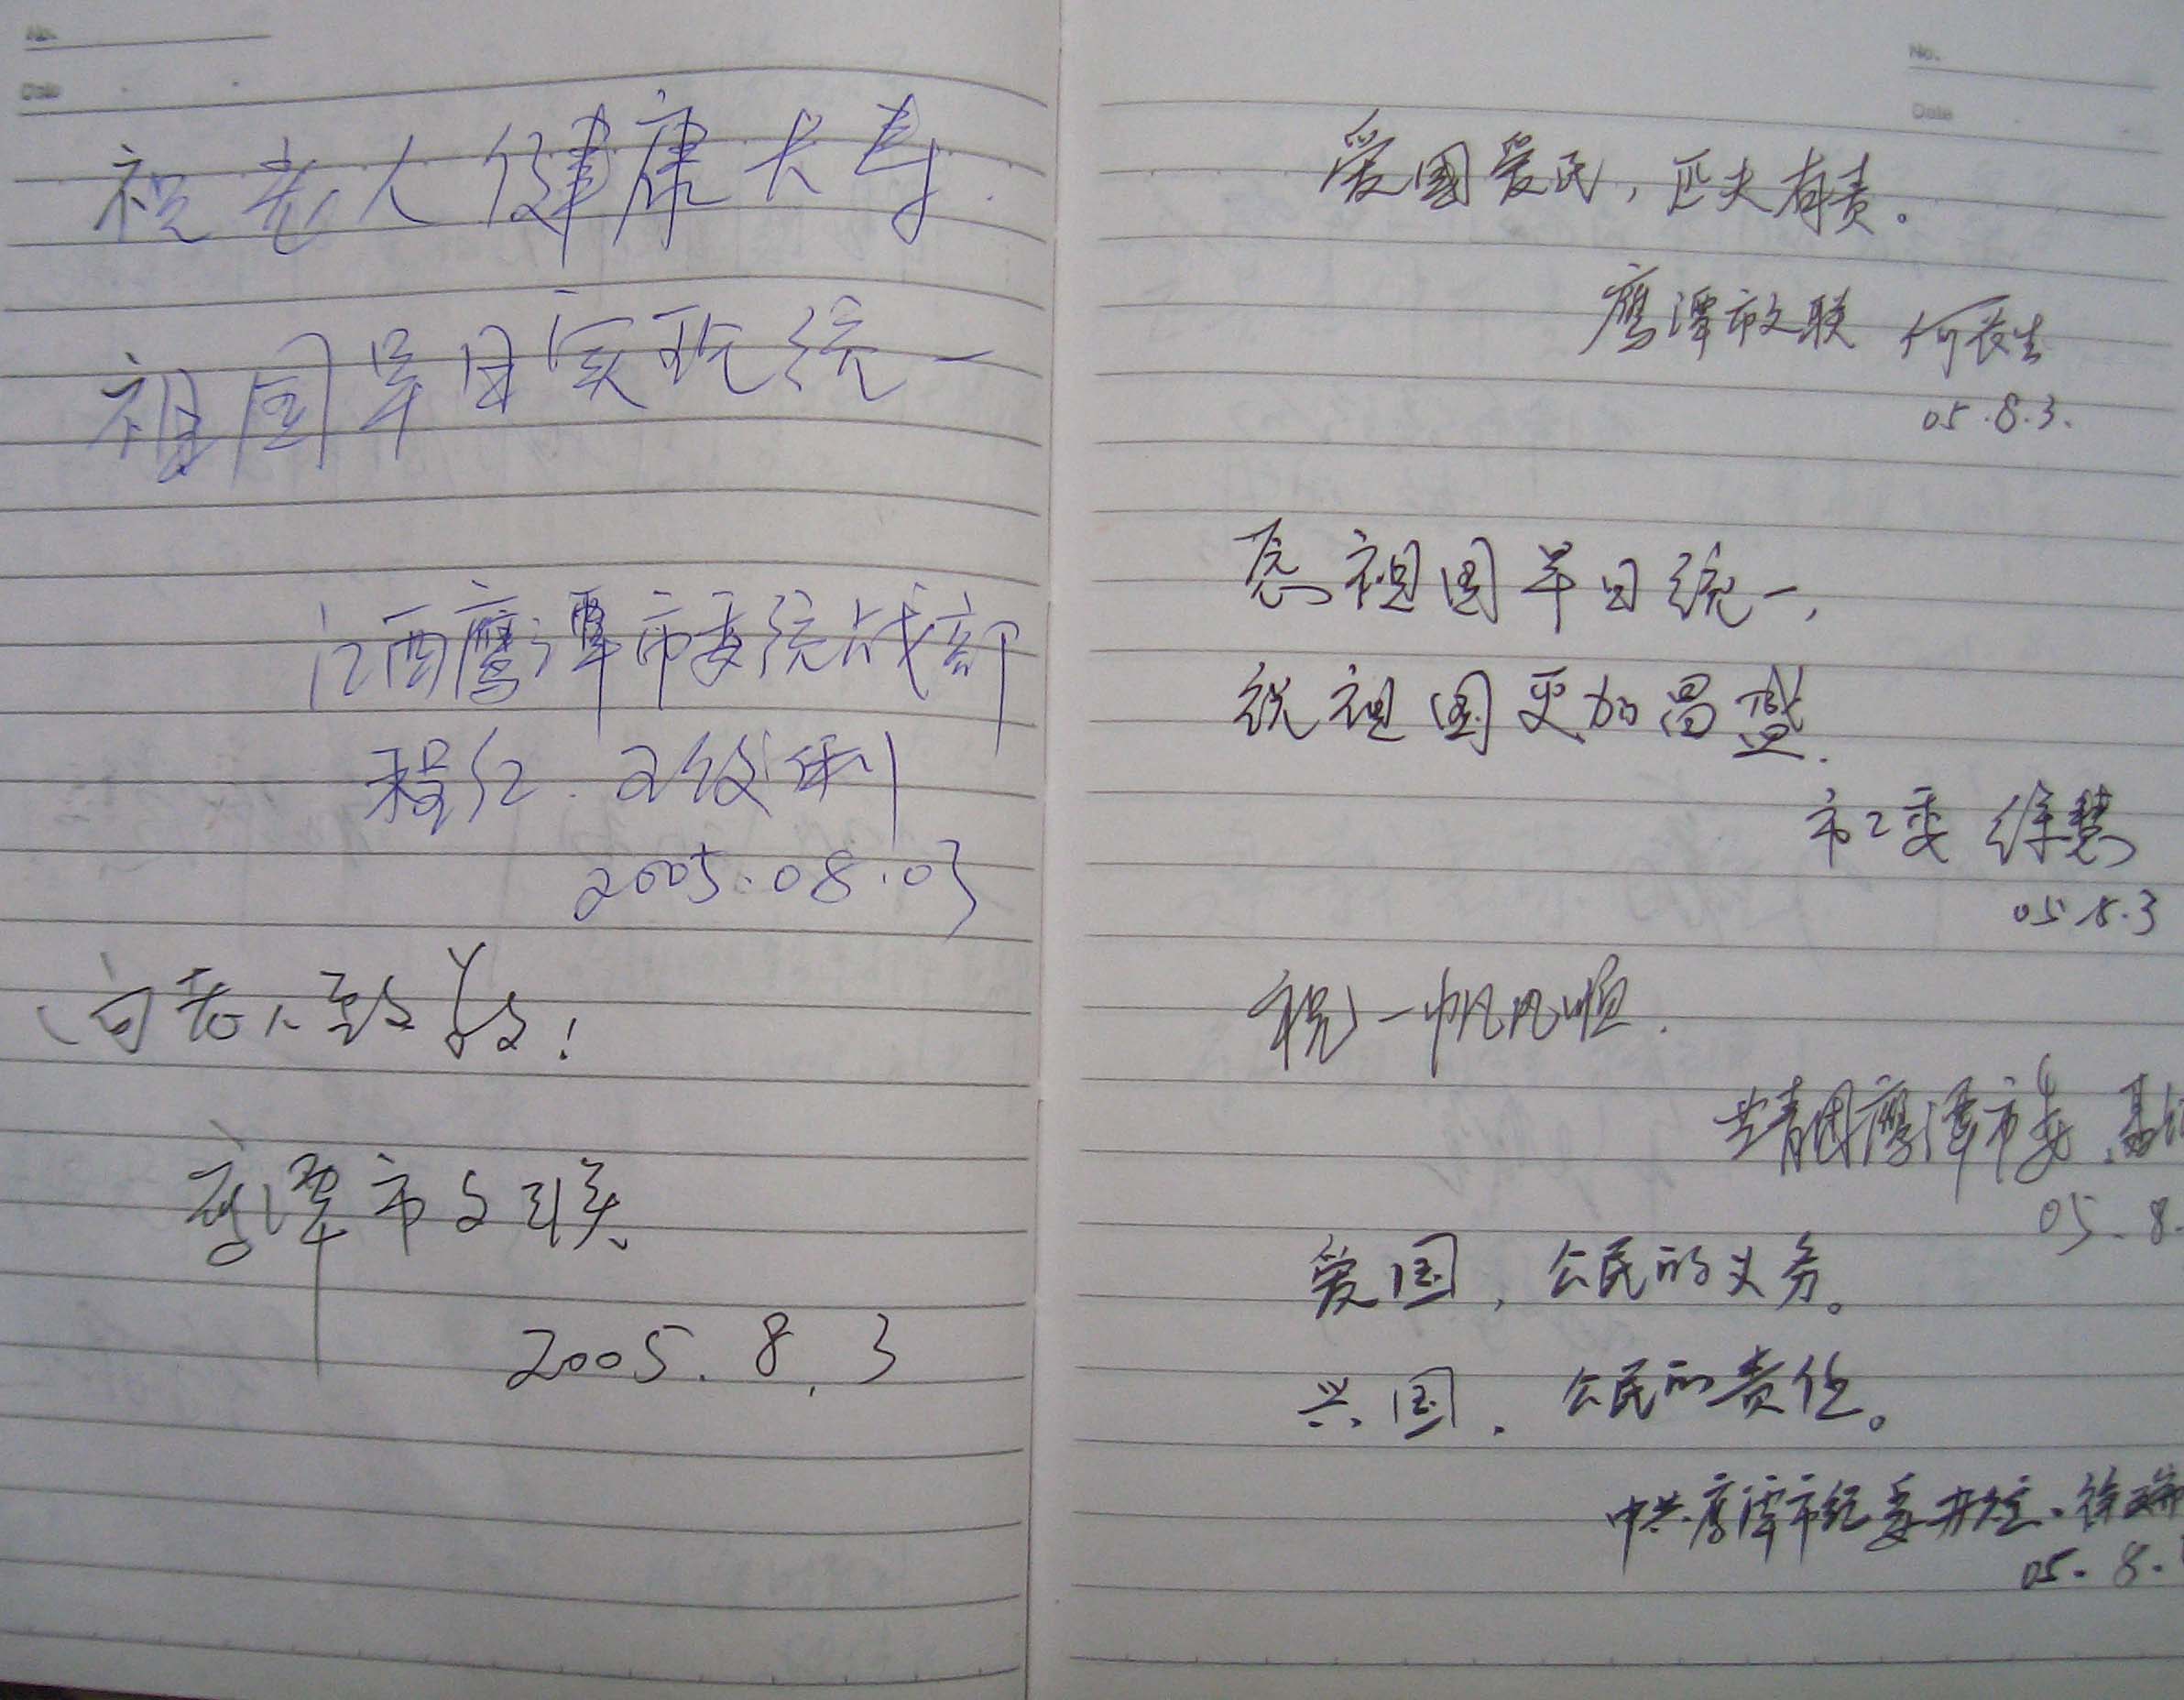 No.
Date
祝老人健康长寿.
祖国早日实现统一
江西鹰潭市委统战部
程红
2005.08.03
向老人致敬!
鹰潭市文联
2005.8.3
No.
Date
爱国爱民,匹夫有责。
鹰潭市文联 何长生
05.8.3.
愿祖国早日统一,
祝祖国更加昌盛.
市工委 徐慧
05.8.3
祝一帆风顺.
共青团鹰潭市委
05.8.
爱国,公民的义务。
兴国.公民的责任。
中共鹰潭市纪委 徐
05.8.